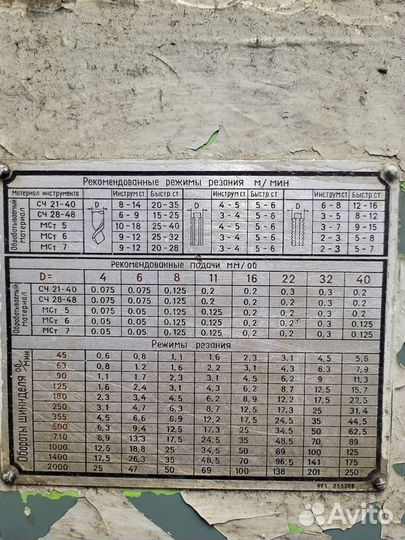 Рекомендованные режимы резания м/мин
Материал инструмента Инструм.ст. Быстр ст. Инструм.ст. Быстр ст. Инструм.ст. Быстр ст.
Обрабатываемый материал
СЧ 21-40 D 8-14 20-35 D 4-5 5-6 D 6-8 12-16
СЧ 28-48 6-9 15-25 3-4 5-6 3-5 8-12
МСт 5 10-18 25-40 3-4 5-6 9-15
МСт 6 9-12 25-32 3-4 5-6 2-3 5-8
МСт 7 9-12 20-28 3-4 5-6 2-3 5-7
Рекомендованные подачи мм/об
Обрабатываемый материал
D= 4 6 8 11 16 22 32 40
СЧ 21-40 0.075 0.075 0.125 0.2 0.2 0.3 0.3 0.2
СЧ 28-48 0.075 0.075 0.125 0.2 0.2 0.3 0.3 0.2
МСт 5 0.075 0.075 0.125 0.125 0.2 0.2 0.3 0.2
МСт 6 0.05 0.05 0.125 0.125 0.2 0.2 0.3 0.125
МСт 7 0.05 0.05 0.125 0.125 0.2 0.2 0.3 0.125
Режимы резания
Обороты шпинделя об/мин
45 0,6 0,8 1,1 1,6 2,3 3,1 4,5 5,6
63 0,8 1,2 1,6 2,2 3,2 4,4 6,3 7,9
90 1,1 1,7 2,3 3,1 4,5 6,2 9 11,3
125 1,6 2,4 3,1 4,3 6,3 8,7 12,5 15,7
180 2,3 3,4 4,5 6,2 9 12,5 17,5 22,5
250 3,1 4,7 6,3 8,7 12,5 17,3 25 31,4
355 4,5 6,6 8,9 12,2 17,5 24,5 35 44,5
500 6,3 9,4 12,5 17,3 25 34,5 50 62,5
710 8,9 13,3 17,5 24,5 35 48,5 70 89
1000 12,5 18,8 25 34,5 50 69 100 125
1400 17,5 26,3 35 48,5 70 96,5 141 175
2000 25 47 50 69 100 138 201 250
Avito